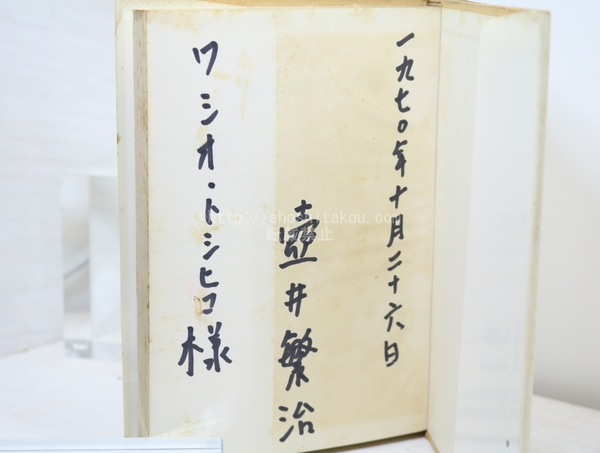 一九七〇年十月二十六日
壺井繁治
ワシオ・トシヒコ様
©http://shoshitakou.com
転載禁止